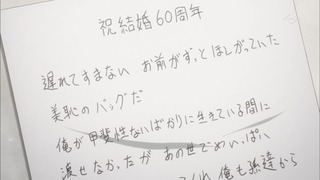 祝結婚60周年
遅れてすまない お前がずっとほしがっていた
美恥のバッグだ
俺が甲斐性ないばかりに生きている間に
渡せなかったが あの世でめいっぱい
くれ 俺も孫達から